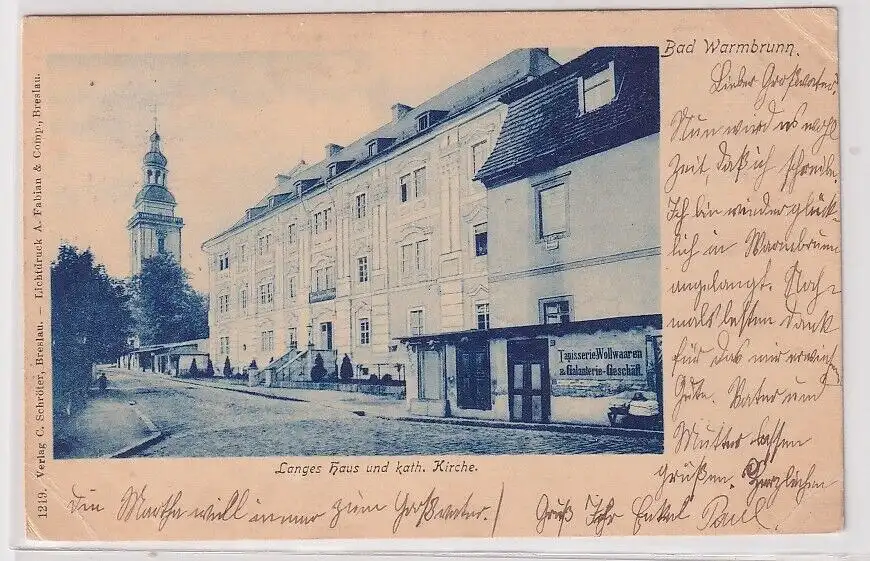 Bad Warmbrunn.
Lieber Großvater.
Nun wird es wohl
Zeit, daß ich schreibe.
Ich bin wieder glück-
lich in Warmbrunn
angelangt. Noch-
mals besten Dank
für das mir erwies.
Gute. Vater und
Mutter lassen
grüßen. Herzlichen
Gruß Ihr Enkel Paul.
Die Martha will immer zum Großvater.
Tapisserie-Wollwaaren
u. Galanterie-Geschäft.
Langes Haus und kath. Kirche.
1219. Verlag C. Schröter, Breslau. — Lichtdruck A. Fabian & Comp., Breslau.